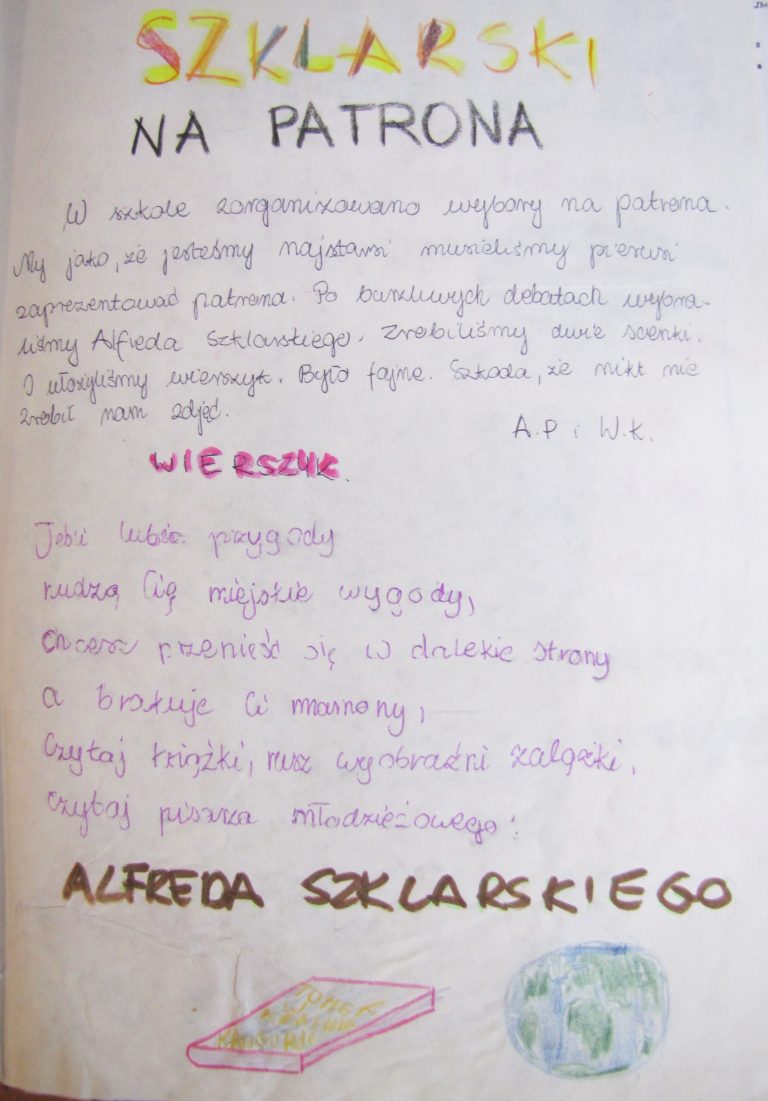 SZKLARSKI
NA PATRONA
W szkole zorganizowano wybory na patrona.
My jako, że jesteśmy najstarsi musieliśmy pierwsi
zaprezentować patrona. Po burzliwych debatach wybra-
liśmy Alfreda Szklarskiego. Zrobiliśmy dwie scenki.
I ułożyliśmy wierszyk. Było fajne. Szkoda, że nikt nie
zrobił nam zdjęć.
A.P i W.K.
WIERSZYK.
Jeśli lubisz przygody
nudzą Cię miejskie wygody,
chcesz przenieść się w dalekie strony
a brakuje Ci mamony,
Czytaj książki, rusz wyobraźni zalążki,
czytaj pisarza młodzieżowego:
ALFREDA SZKLARSKIEGO
TOMEK
W
KRAINIE
KANGURÓW